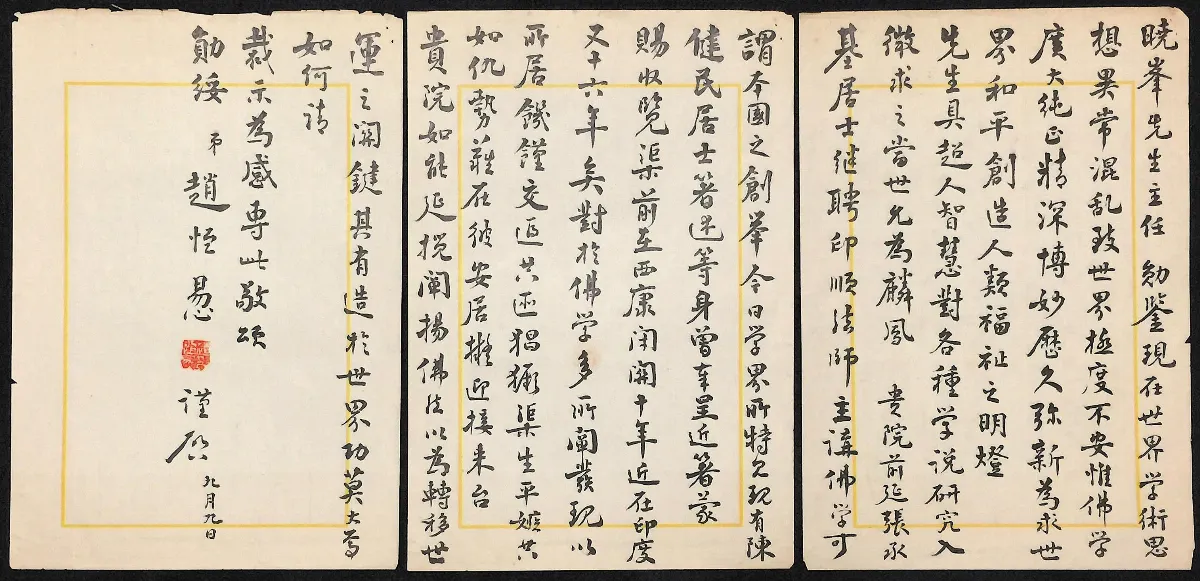 曉峯先生主任 勛鑒現在世界学術思
想異常混乱致世界極度不安惟佛学
廣大純正精深博妙歷久弥新為求世
界和平創造人類福祉之明燈
先生具超人智慧對各種学説研究入
微求之當世允為麟鳳 貴院前延張承
基居士继聘印順法師主講佛学可
謂本國之創举今日学界所特允現有陳
健民居士箸述等身曾奉呈近箸蒙
賜收覽渠前在西康闭関十年近在印度
又十六年矣對於佛学多所闡發現以
所居饑饉交迫共匪猖獗渠生平嫉共
如仇勢難在彼安居擬迎接来台
貴院如能延揽闡揚佛法以為轉移世
運之関鍵其有造於世界功莫大焉
如何請
裁示為感専此敬頌
勛綏
弟 趙恒惖 謹啓 九月九日